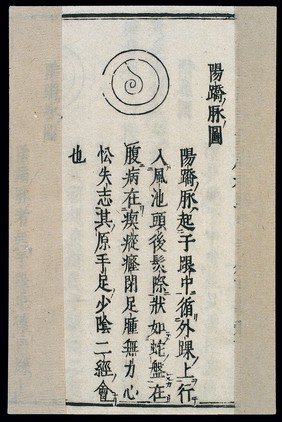 陽蹻脉圖
陽蹻脉起于跟中循外踝上行
入風池頭後髮際狀如蛇盤在
腹病在瘈瘲癃閉足腫無力心
忪失志其原手足少陰二經會
也